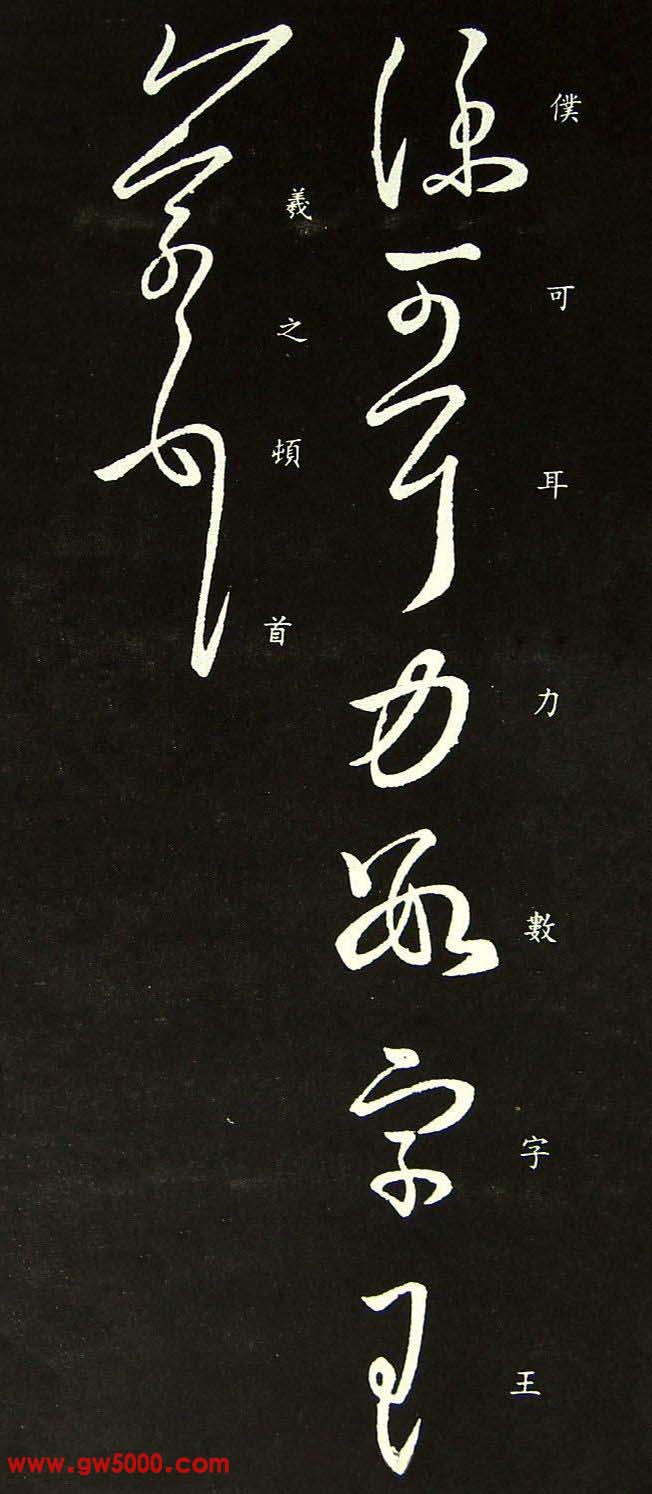 僕可耳力數字王
羲之頓首
www.gw5000.com